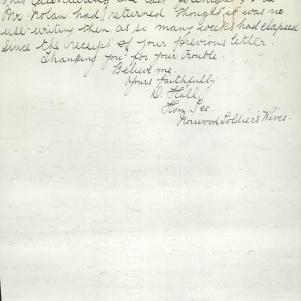 Mr. Nolan had returned thought it was no
use writing then as so many weeks had elapsed
since the receipt of your previous letter
Thanking you for your trouble
Believe me,
Yours faithfully
D. Hall
Hon. Sec
Norwood Soldiers Wives.